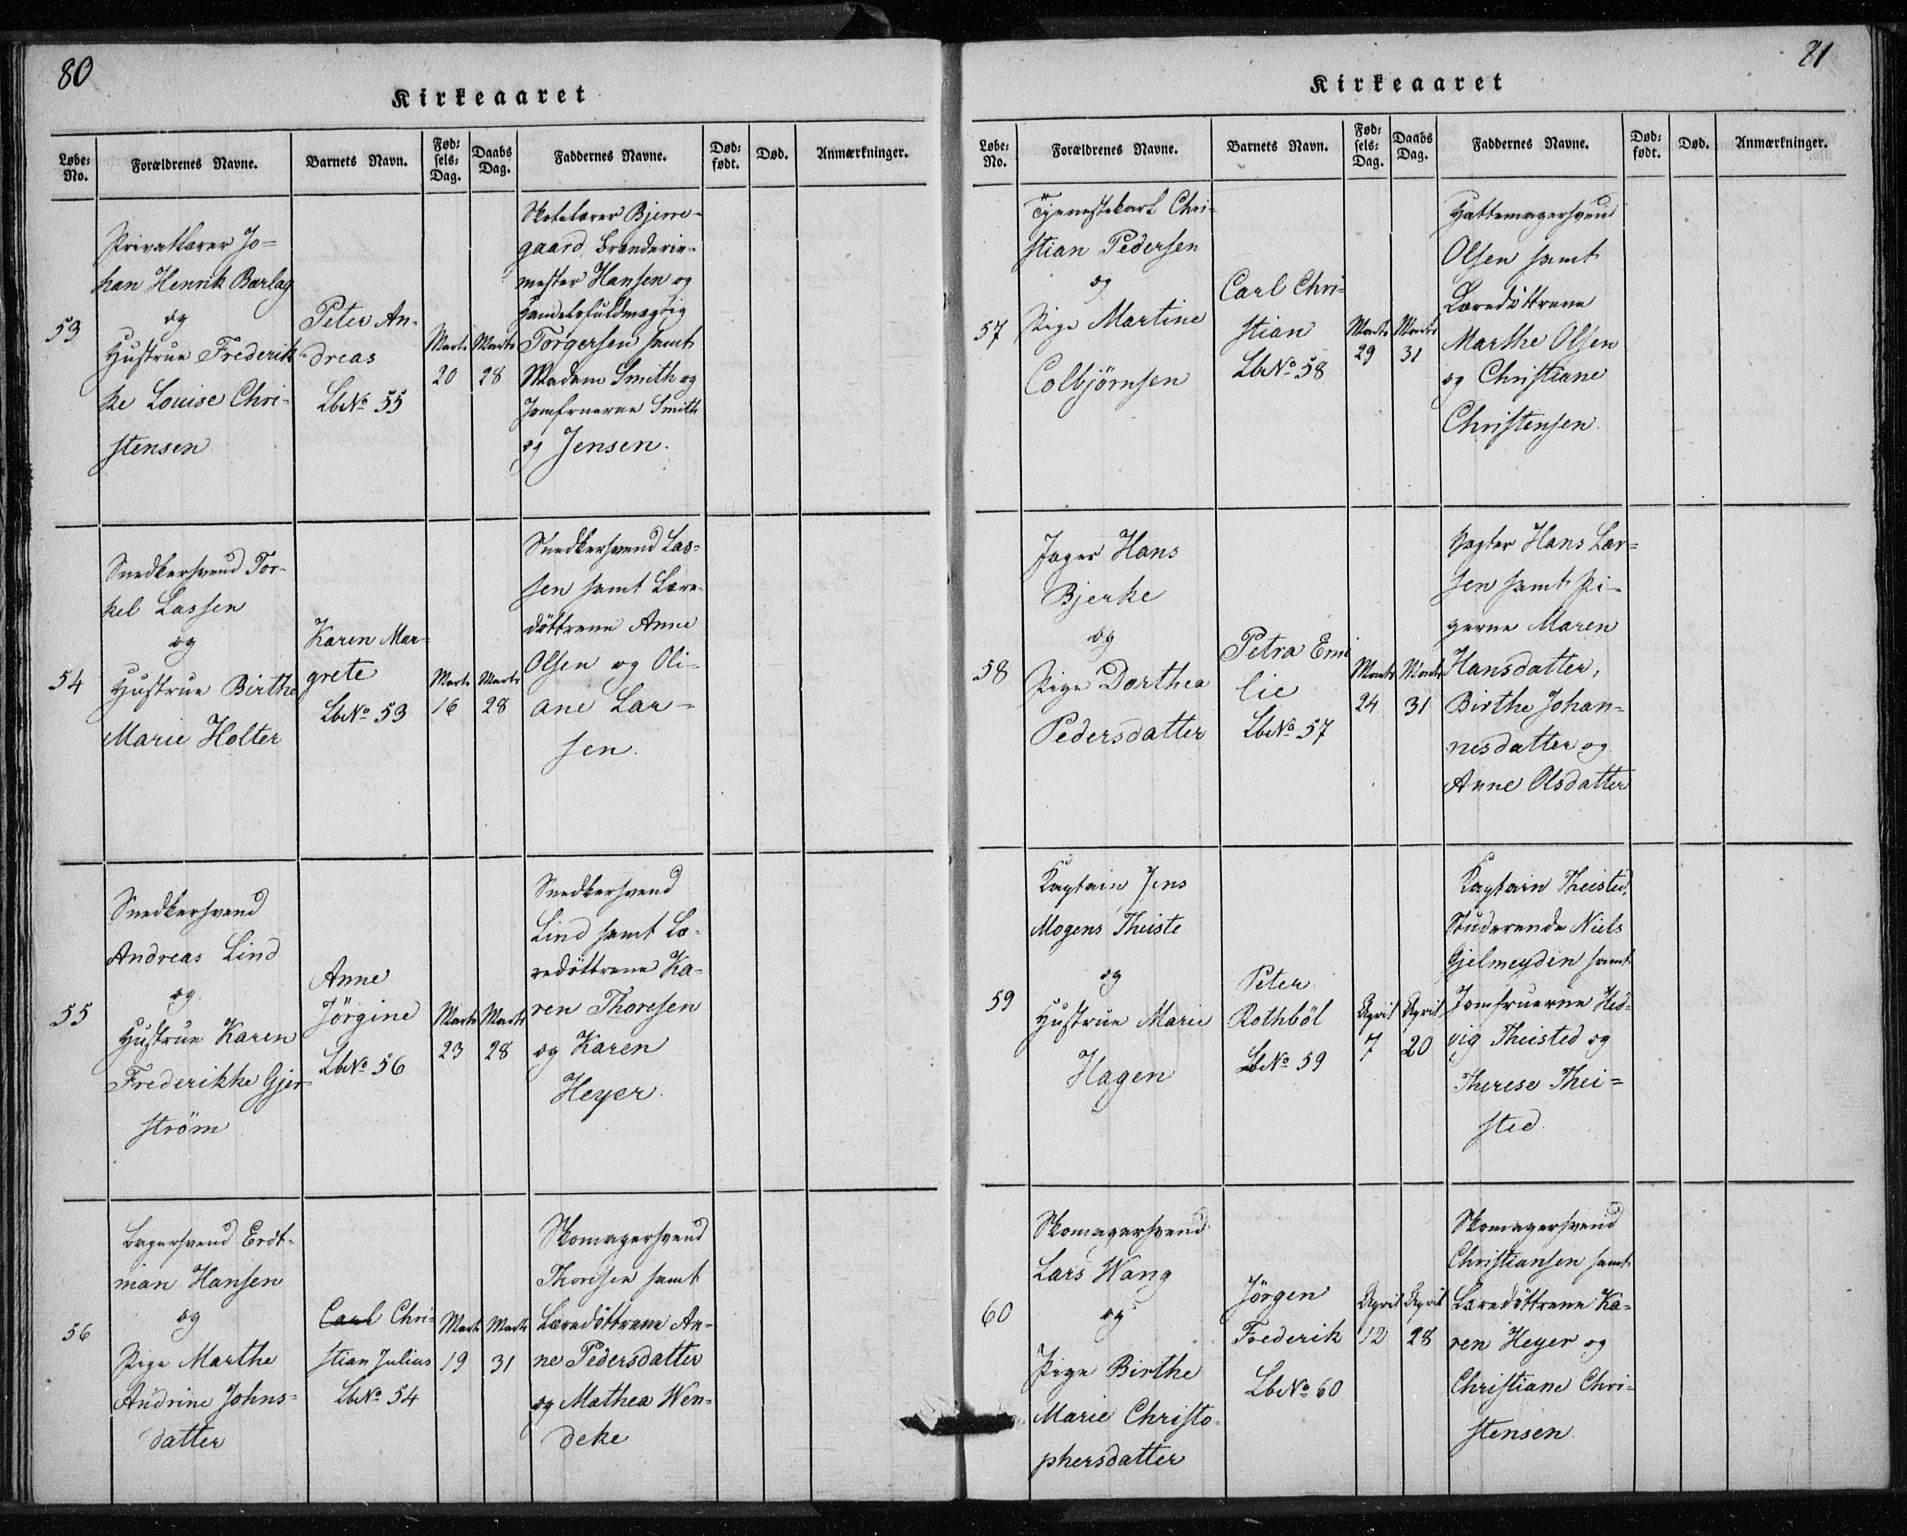 80
Kirkeaaret
Løbe-No.
Forældrenes Navne.
Barnets Navn.
Fødsels-Dag.
Daabs Dag.
Faddernes Navne.
Dødfødt.
Død.
Anmærkninger.
53
Privatlærer Jo=
han Henrik Barlag
og
Hustrue Frederik-
ke Louise Chri-
stensen
Peter An-
dreas
LbNo 55
Marts
20
Marts
28
Skolelærer Bjerre-
gaard, Brænderie-
mester Hansen og
Handelsfuldmægtig
Torgersen samt
Madam Smith og
Jomfruerne Smith
og Jensen.
54
Snedkersvend Tor-
kel Lassen
og
Hustrue Birthe
Marie Holter
Karen Mar-
grete
LbNo 53
Marts
16
Marts
28
Snedkersvend Las-
sen samt Lære-
döttrene Anne
Olsen og Oli-
ane Lar-
sen.
55
Snedkersvend
Andreas Lind
og
Hustrue Karen
Frederikke Gjer-
ström
Anne
Jörgine
LbNo 56
Marts
23
Marts
28
Snedkersvend
Lind samt Læ-
redöttrene Ka-
ren Thoresen
og Karen
Heyer.
56
Bagersvend Erdt-
man Hansen
og
Pige Marthe
Andrine Johns=
datter
Carl Chri-
stian Julius
LbNo 54
Marts
19
Marts
31
Skomagersvend
Thoresen samt
Læredöttrene An-
ne Pedersdatter
og Mathea Wen-
deke
81
Kirkeaaret
Løbe-No.
Forældrenes Navne.
Barnets Navn.
Fødsels-Dag.
Daabs Dag.
Faddernes Navne.
Dødfødt.
Død.
Anmærkninger.
57
Tjenestekarl Chri-
stian Pedersen
og
Pige Martine
Colbjørnsen
Carl Chri-
stian
LbNo 58
Marts
29
Marts
31
Hattemagersvend
Olsen samt
Læredöttrene
Marthe Olsen
og Christiane
Christensen.
58
Jæger Hans
Bjerke
og
Pige Dorthea
Pedersdatter
Petra Emi
lie
LbNo 57
Marts
24
Marts
31
Pagter Hans Lar=
sen samt Pi-
gerne Maren
Hansdatter,
Birthe Johan-
nesdatter og
Anne Olsdatter
59
Kaptain Jens
Mogens Theiste
og
Hustrue Marie
Hagen
Peter
Rothböl
LbNo 59
April
7
April
20
Kaptain Theisted,
Studerende Niels
Gjelmeydin samt
Jomfruerne Hed-
vig Theisted og
Therese Thei=
sted.
60
Skomagersvend
Lars Wang
og
Pige Birthe
Marie Christo-
phersdatter
Jörgen
Frederik
LbNo 60
April
12
April
28
Skomagersvend
Christiansen samt
Læredöttrene Ka-
ren Heyer og
Christiane Chri-
stensen